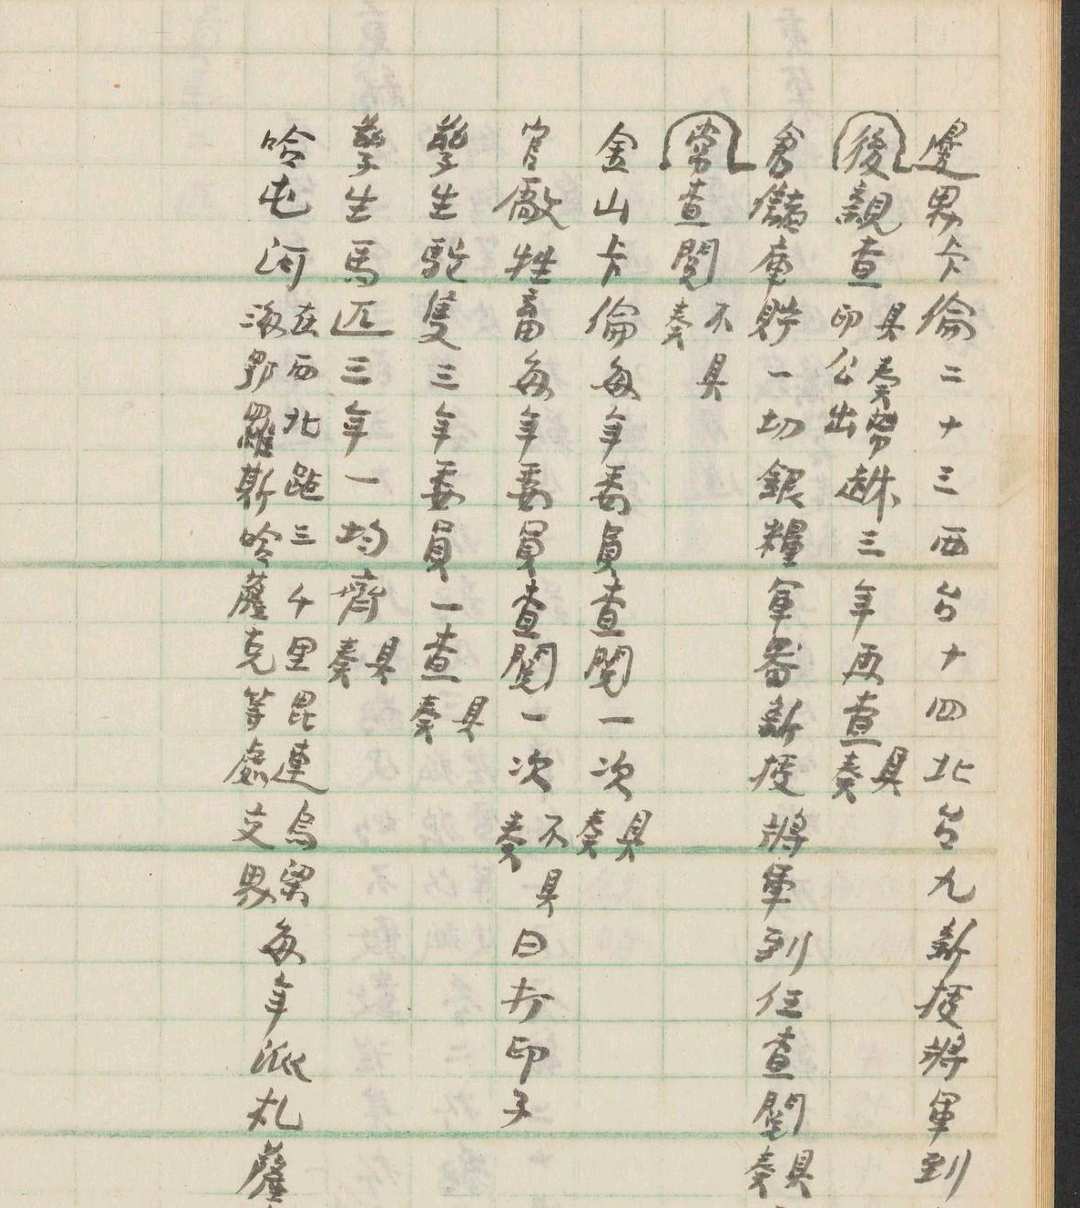 邊界卡倫二十三西台十四北台九新授將軍到
後親查具奏幣印公出越三年再查具奏
倉儲庫貯一切銀糧軍器新授將軍到任查閱具奏
常查閱不具奏
金山卡倫每年委員查閱一次具奏
官廠牲畜每年委員查閱一次不具奏曰打印子
孳生駝隻三年委員一查具奏
孳生馬匹三年一均齊具奏
哈屯河在西北距三千里毘連烏梁海鄂羅斯哈薩克等處交界每年派札薩